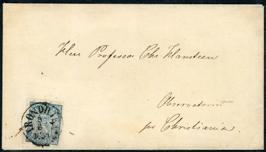 Herr Professor Chr Hansteen
Observatoriet
pr Christiania.